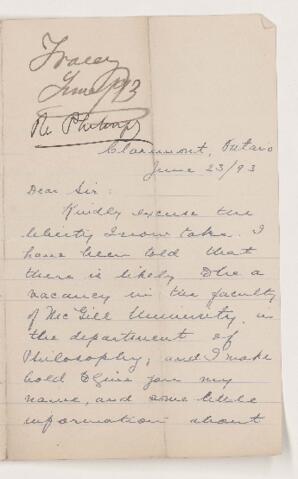 Tracey
June /93
Re Philosophy
Claremont, Ontario
June 23/93
Dear Sir:
Kindly excuse the
liberty I now take. I
have been told that
there is likely to be a
vacancy in the faculty
of McGill University, in
the department of
Philosophy, and I make
bold to give you my
name, and some little
information about